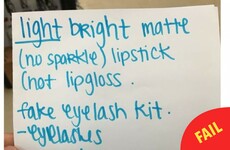 light bright matte
(no sparkle) lipstick
(not lipgloss.
fake eyelash kit.
-eyelashes
FAIL